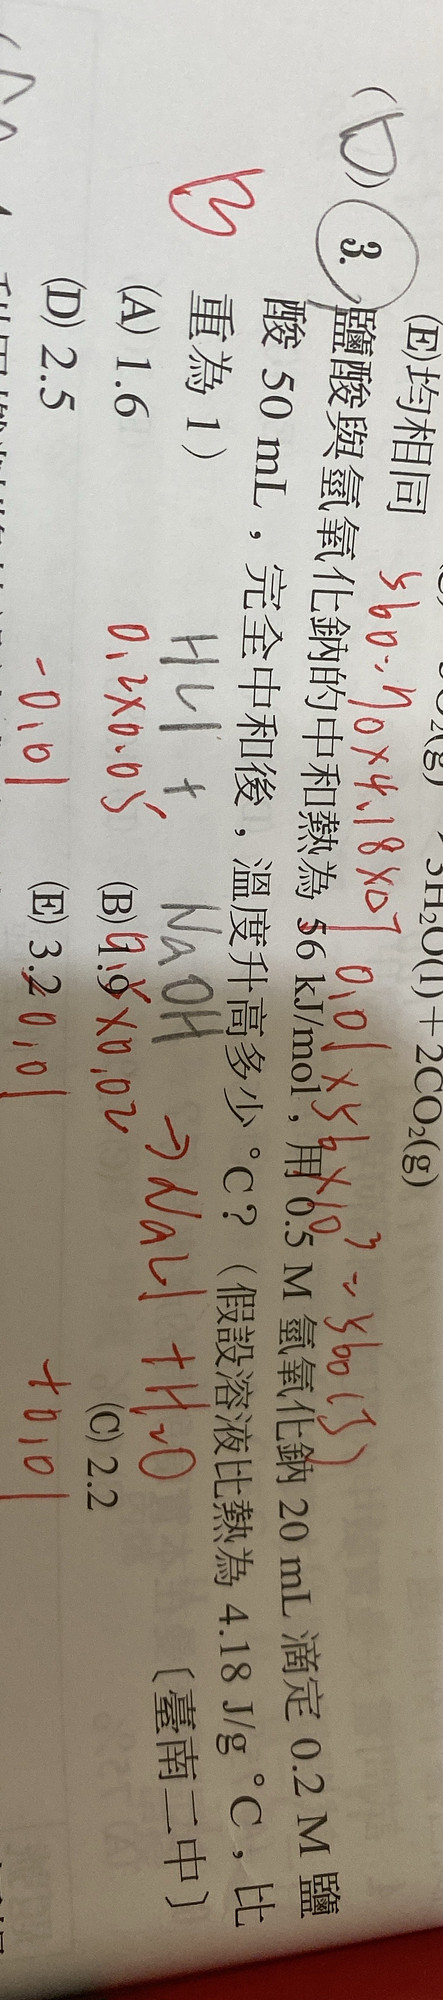 (E)均相同
560=70×4.18×ΔT 0.01×56×10³=560(J)
(D) 3. 鹽酸與氫氧化鈉的中和熱為 56 kJ/mol,用 0.5 M 氫氧化鈉 20 mL 滴定 0.2 M 鹽
酸 50 mL,完全中和後,溫度升高多少 °C?(假設溶液比熱為 4.18 J/g °C,比
重為 1) 〔臺南二中〕
B
HCl + NaOH → NaCl + H₂O
(A) 1.6 (B) 1.9 (C) 2.2
0.2×0.05 0.5×0.02
(D) 2.5 (E) 3.2
-0.01 -0.01 +0.01